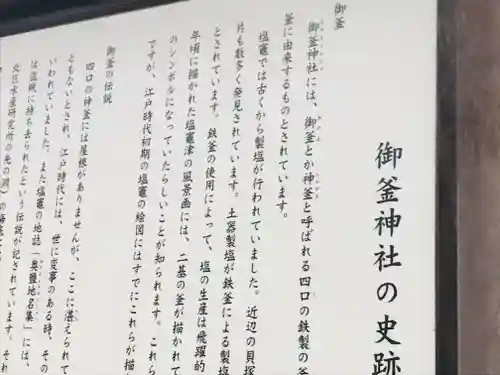 御釜神社の史跡
御釜
御釜神社には、御釜とか神釜と呼ばれる四口の鉄製の釜
釜に由来するものとされています。
塩竈では古くから製塩が行われていました。近辺の貝塚
片も数多く発見されています。土器製塩が鉄釜による製塩
とされています。鉄釜の使用によって、塩の生産は飛躍的
年頃に描かれた塩竈津の風景画には、二基の釜が描かれて
のシンボルになっていたらしいことが知られます。これら
ですが、江戸時代初期の塩竈の絵図にはすでにこれらが描
御釜の伝説
四口の神釜には屋根がありませんが、ここに湛えられて
ともないとされ、江戸時代には、世に変事のある時、その
いわれていました。また塩竈の地誌「奥鹽地名集」には、
は盗賊に持ち去られたという伝説が記されています。それ
北区水産研究所の先の